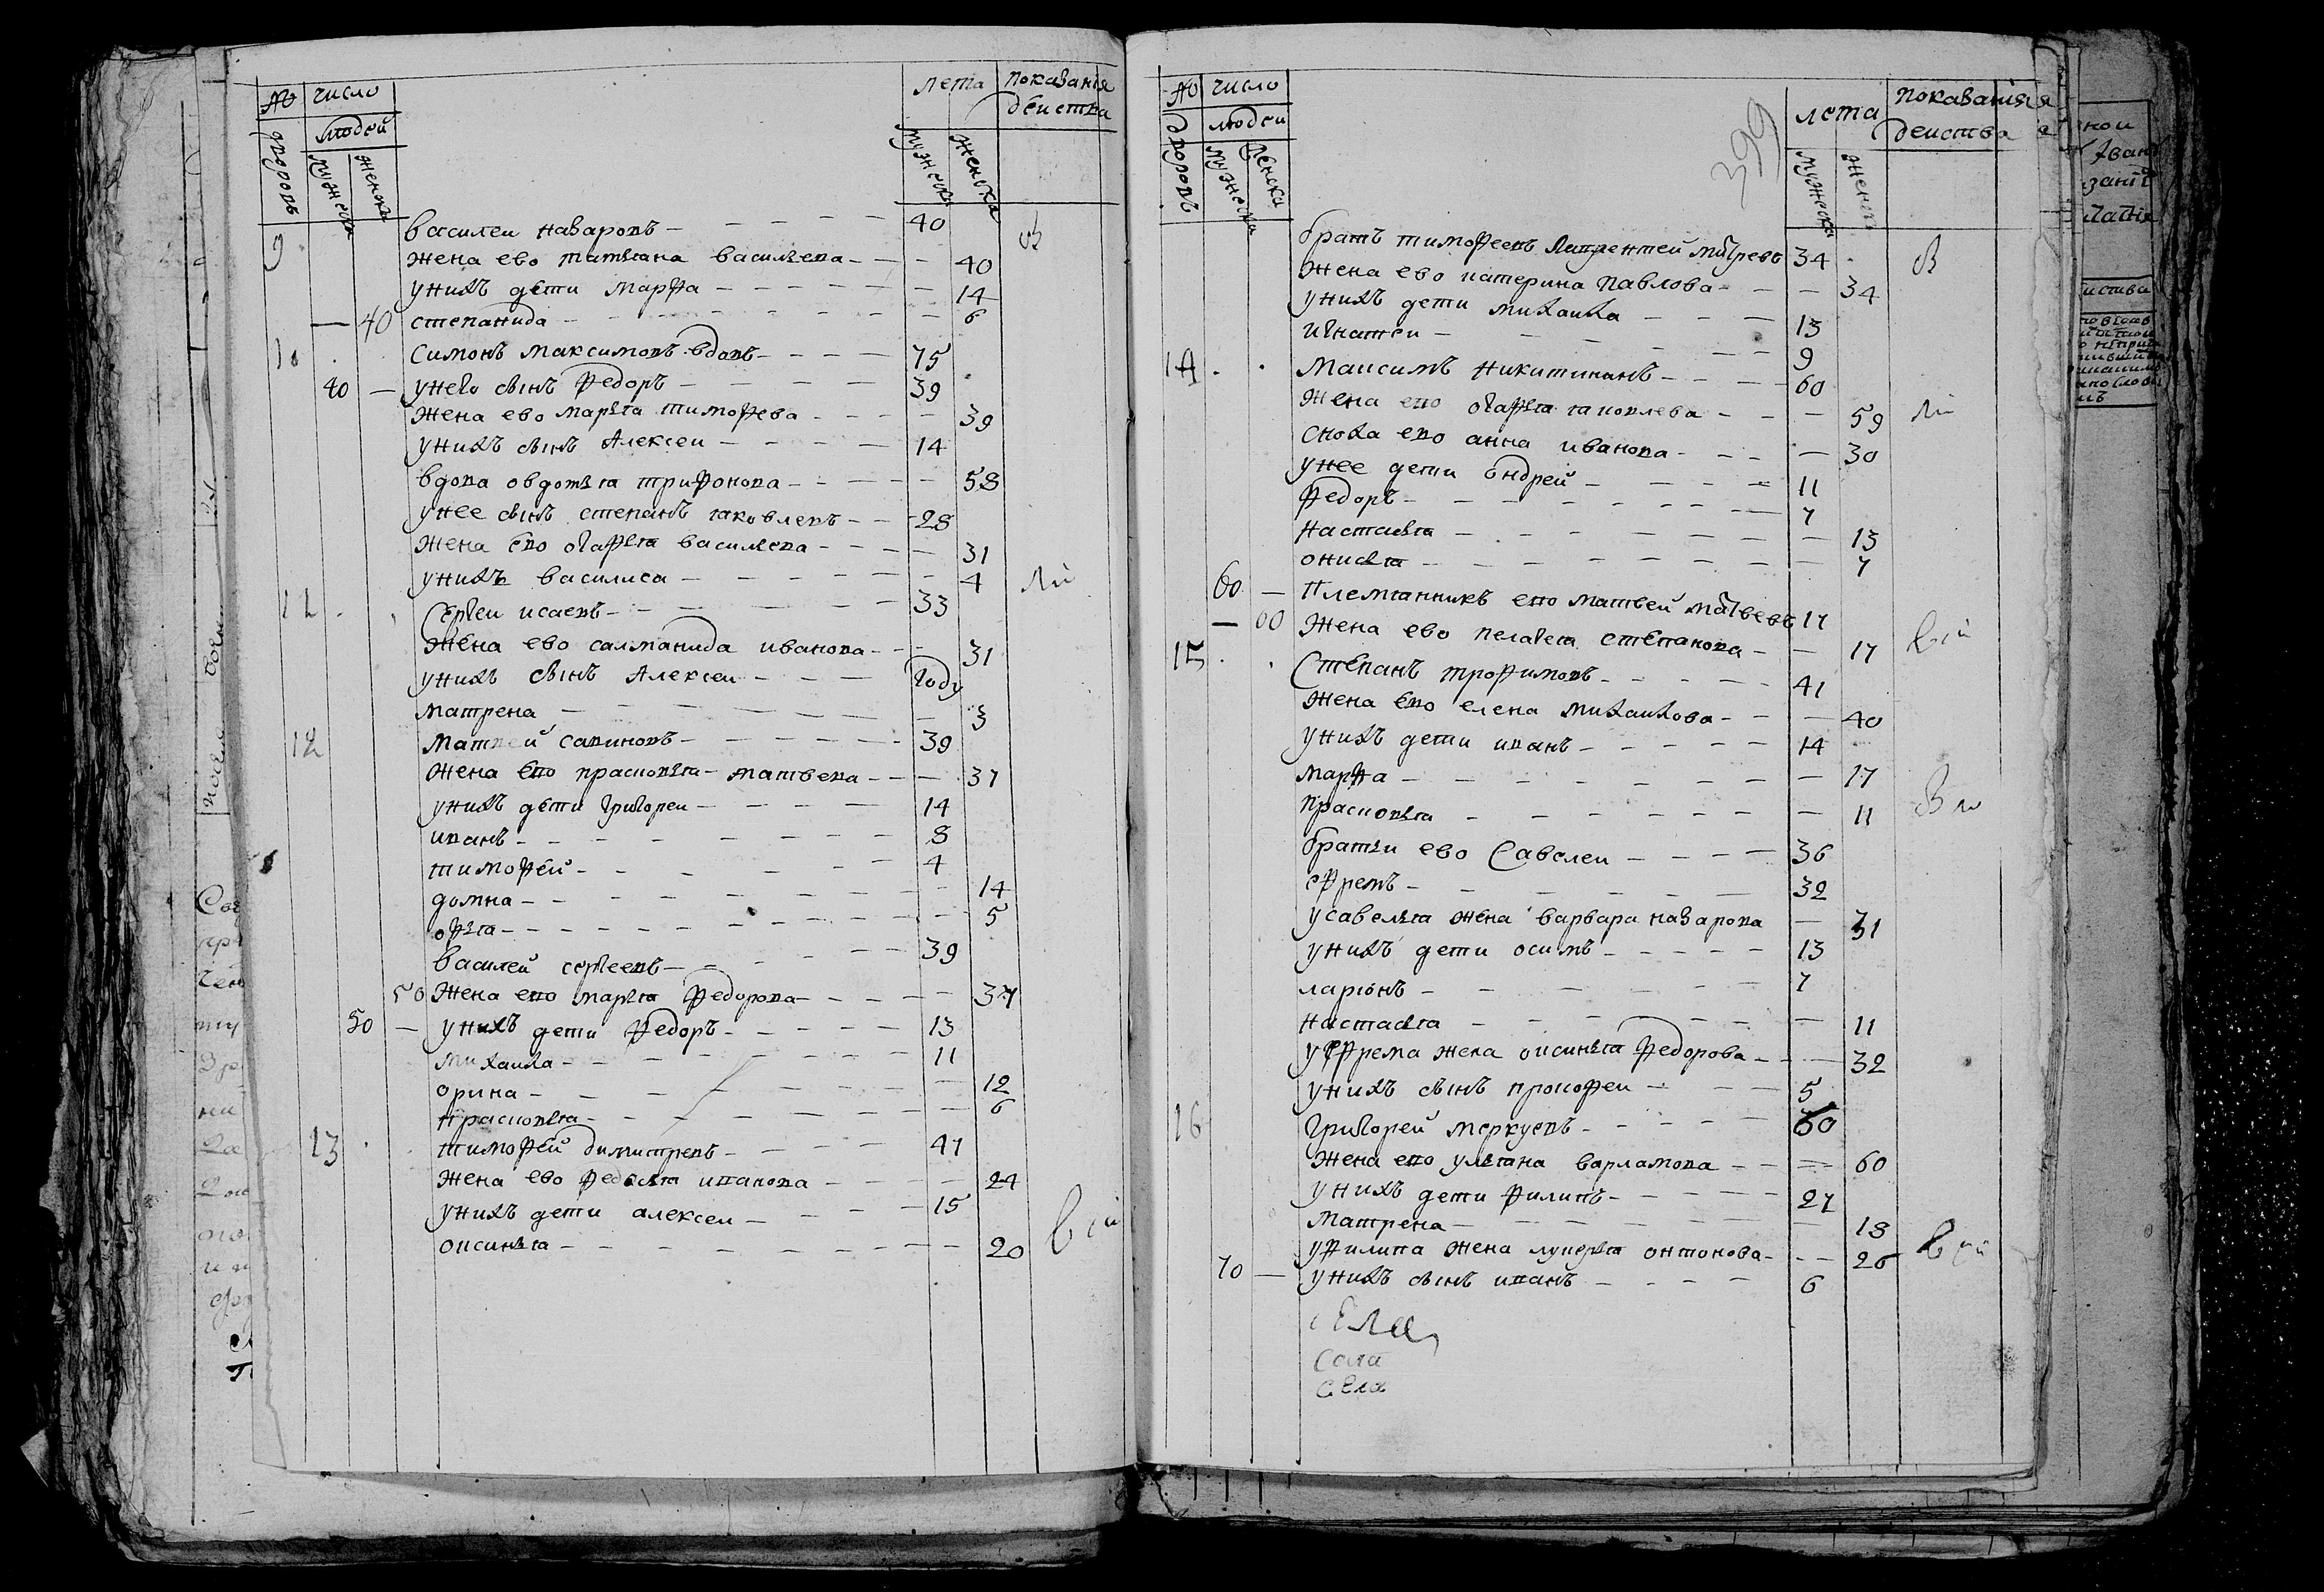 № число лета показанїя
дворовъ людей деиства
мужеска женска мужеска женска
9 василеи назаровъ 40
жена ево татьяна васильева 40
унихъ дети марфа 14
40 степанида 6
10 симонъ максимовъ вдовъ 75
40 унего сынъ федоръ 39
жена ево марья тимофева 39
унихъ сынъ алексеи 14
вдова овдотья трифонова 58
унее сынъ степанъ яковлевъ 28
жена ево огафья васильева 31
унихъ василиса 4
11 сергеи исаевъ 33
жена ево салманида иванова 31
унихъ сынъ алексеи году
матрена 3
12 матвей савиновъ 39
жена ево прасковья матвева 37
унихъ дети григореи 14
иванъ 8
тимофей 4
домна 14
офья 5
василей сергеевъ 39
50 жена ево марья федорова 37
50 унихъ дети федоръ 13
михаила 11
орина 12
прасковья 6
13 тимофей димитревъ 47
жена ево федосья иванова 24
унихъ дети алексеи 15
оксинья 20
399
№ число лета показанїя
дворовъ людеи деиства
мужеска женска мужеска женска
братъ тимофеевъ лаврентей митревъ 34
жена ево катерина павлова 34
унихъ дети михаила 13
игнатеи 9
14 максимъ никитинанъ 60
жена ево огафья яковлева 59
сноха ево анна иванова 30
унее дети ондрей 11
федоръ 7
настасья 13
онисья 7
60 племянникъ ево матвей матвевъ 17
60 жена ево пелагея степанова 17
15 степанъ трофимовъ 41
жена ево елена михаилова 40
унихъ дети иванъ 14
марфа 17
прасковья 11
братьи ево савелеи 36
ефремъ 32
усавелья жена варвара назарова 31
унихъ дети осипъ 13
ларионъ 7
настасья 11
уефрема жена оксинья федорова 32
унихъ сынъ прокофеи 5
16 григорей меркуевъ 60
жена ево ульяна варламова 60
унихъ дети филипъ 27
матрена 18
уфилипа жена лукерья онтонова 26
70 унихъ сынъ иванъ 6
села
села
села